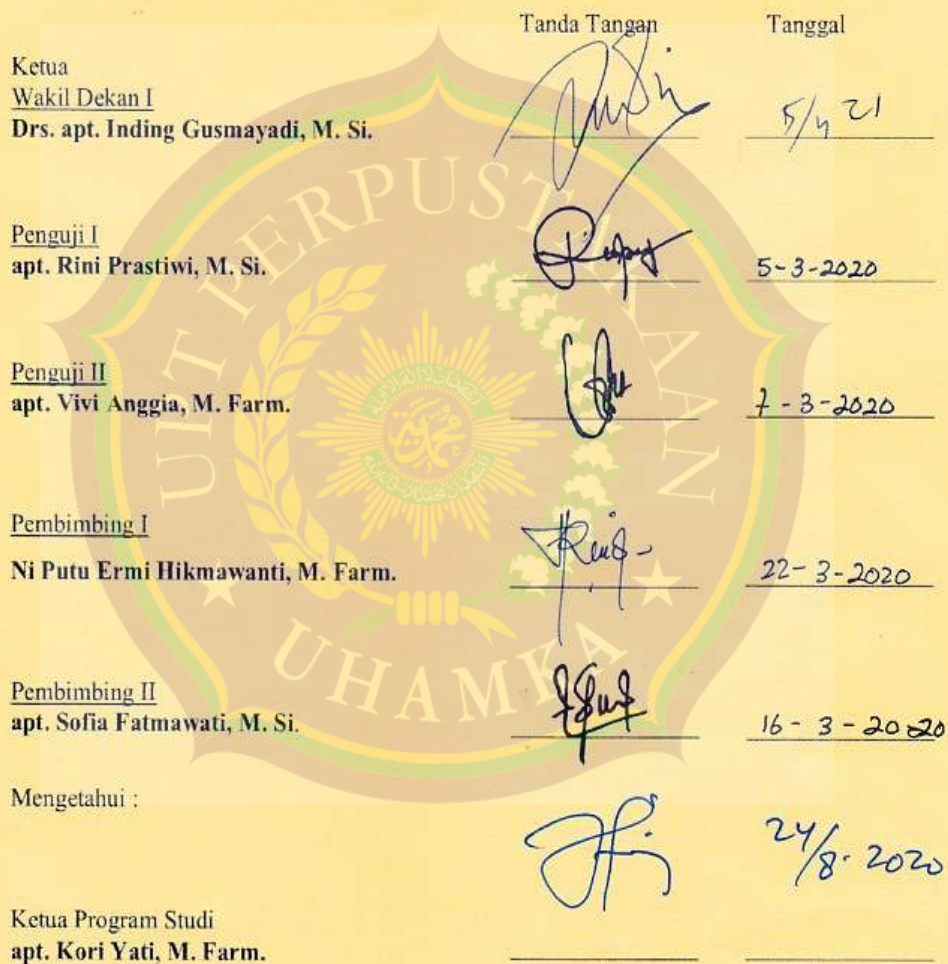 Tanda Tangan Tanggal
Ketua
Wakil Dekan I
Drs. apt. Inding Gusmayadi, M. Si. 5/4 21
Penguji I
apt. Rini Prastiwi, M. Si. 5-3-2020
Penguji II
apt. Vivi Anggia, M. Farm. 7-3-2020
Pembimbing I
Ni Putu Ermi Hikmawanti, M. Farm. 22-3-2020
Pembimbing II
apt. Sofia Fatmawati, M. Si. 16-3-2020
Mengetahui :
24/8. 2020
Ketua Program Studi
apt. Kori Yati, M. Farm.
UPT PERPUSTAKAAN
UHAMKA